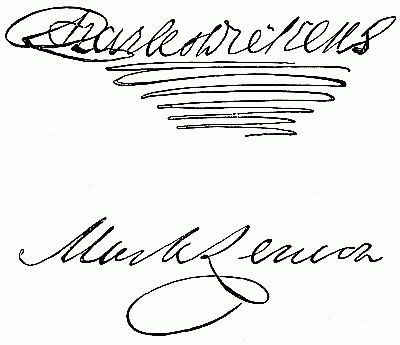 Charles Dickens
Mark Lemon